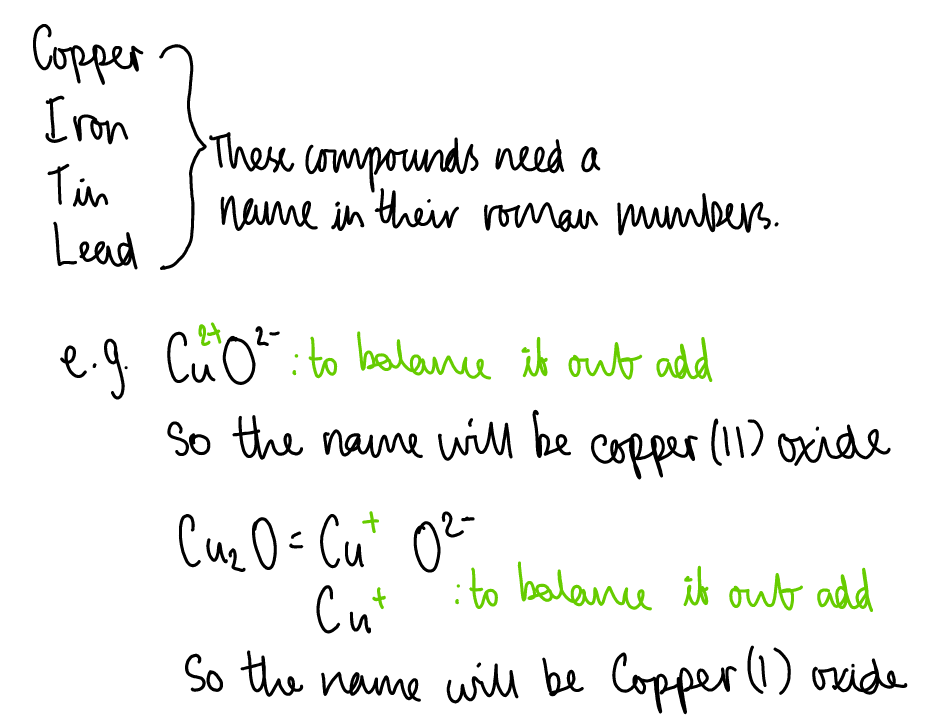 Copper
Iron
Tin
Lead
These compounds need a
name in their roman numbers.
e.g. Cu²⁺O²⁻ : to balance it out add
so the name will be copper (II) oxide
Cu₂O = Cu⁺ O²⁻
Cu⁺ : to balance it out add
So the name will be Copper (I) oxide